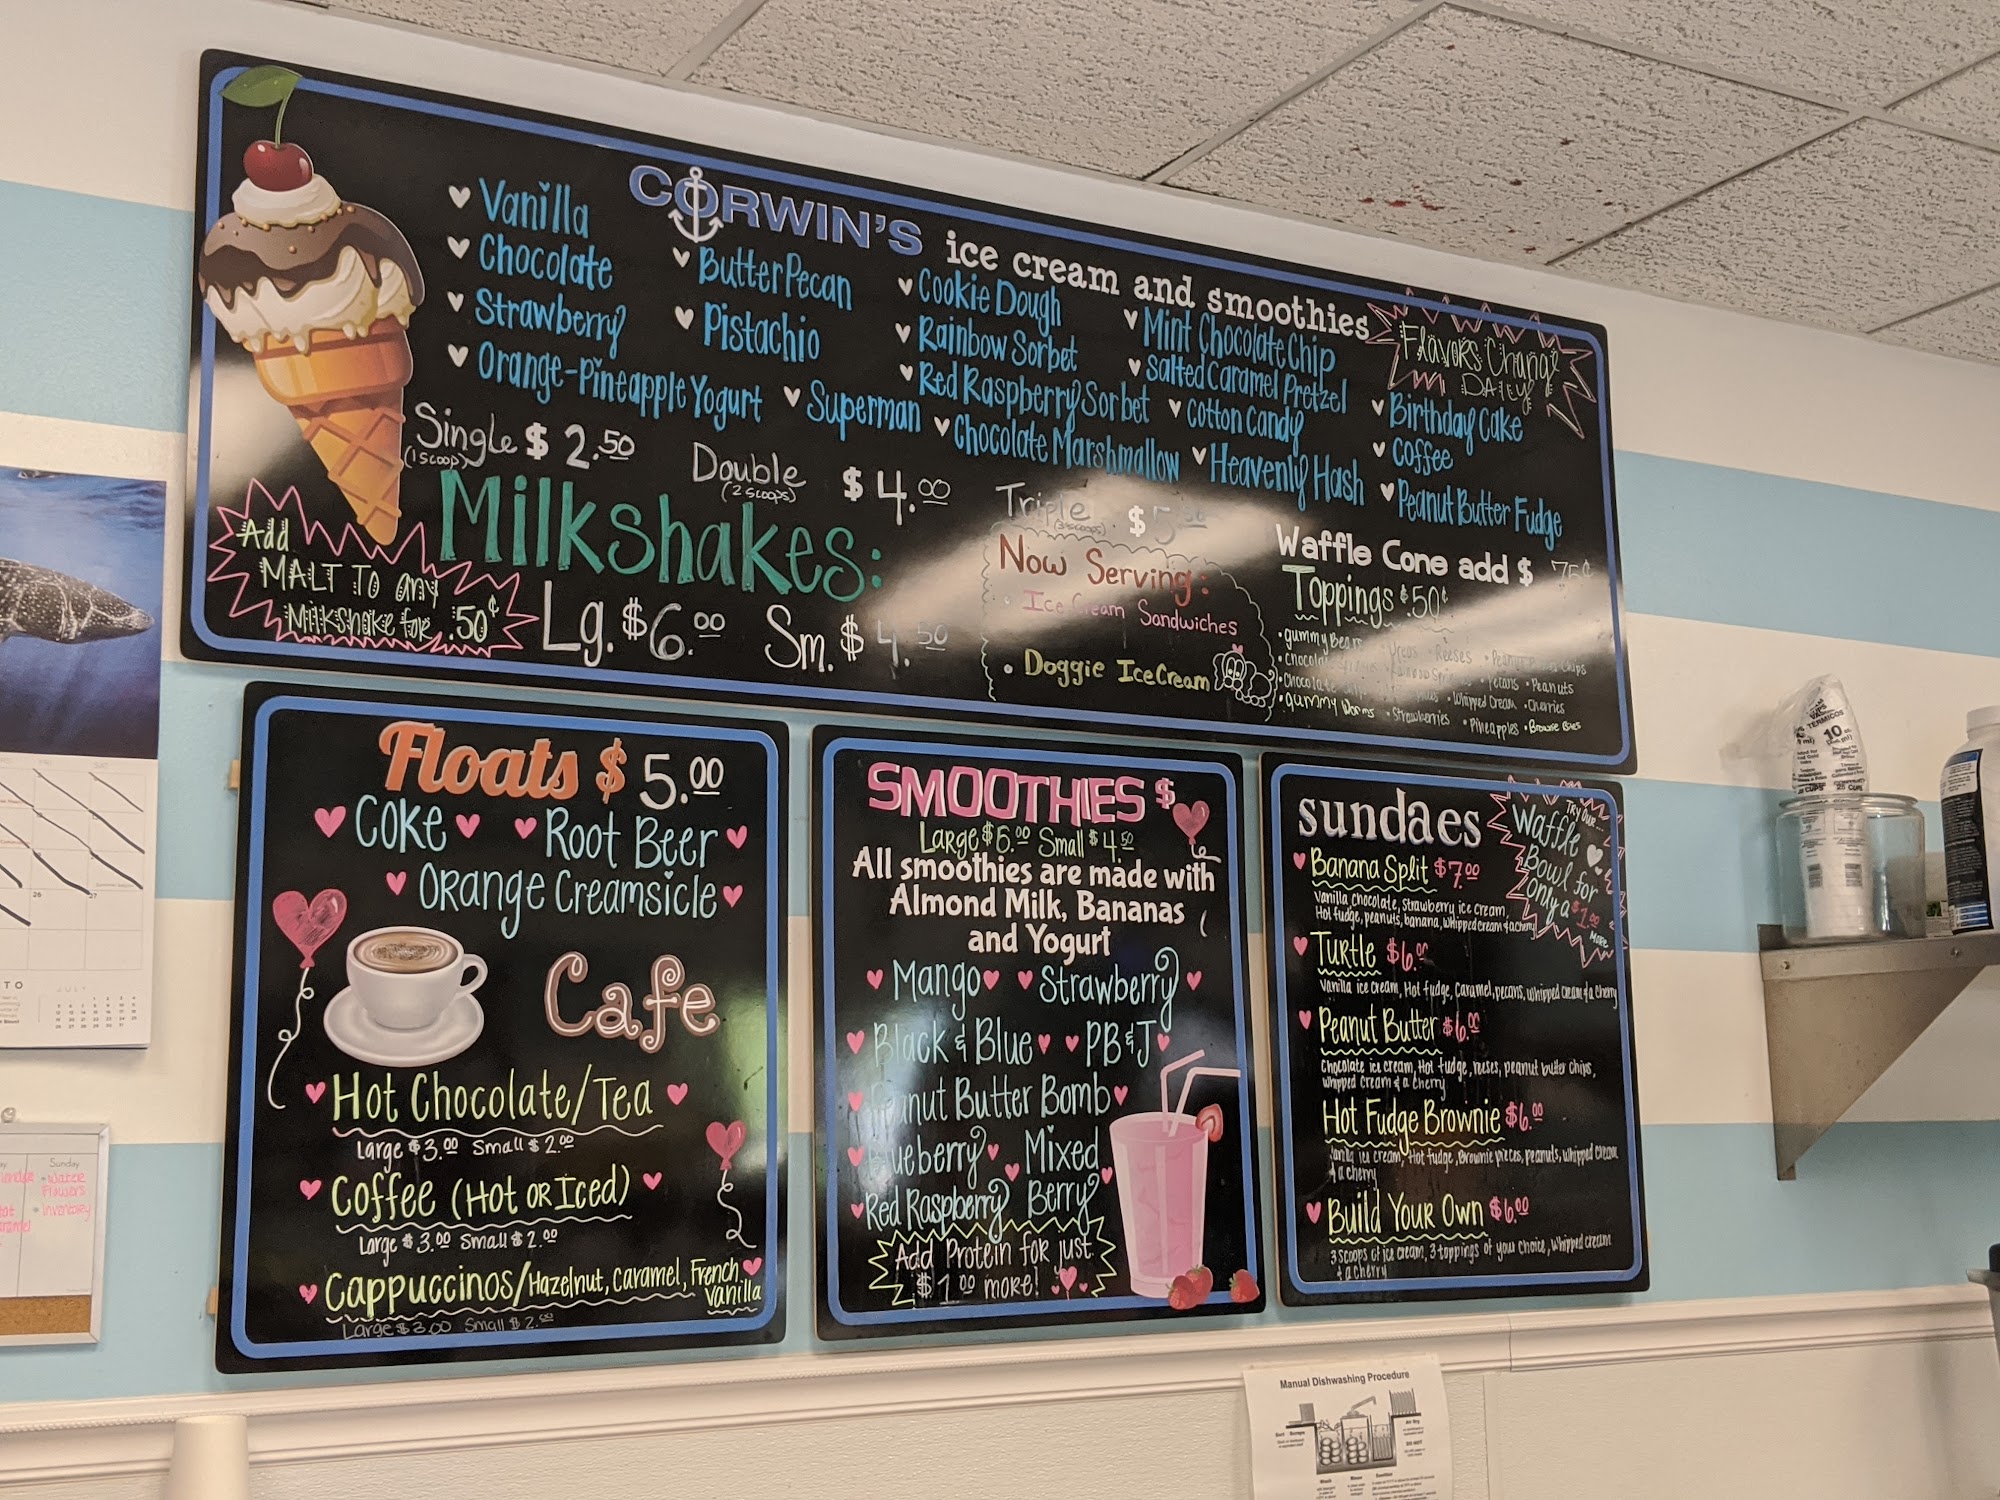 CORWIN'S ice cream and smoothies
Vanilla
Chocolate
Strawberry
Orange-Pineapple Yogurt
Butter Pecan
Pistachio
Superman
Cookie Dough
Rainbow Sorbet
Red Raspberry Sorbet
Chocolate Marshmallow
Mint Chocolate Chip
Salted Caramel Pretzel
Cotton Candy
Heavenly Hash
Flavors Change
DAILY
Birthday Cake
Coffee
Peanut Butter Fudge
Single $2.50
(1 scoop)
Double $4.00
(2 scoops)
Triple $5
(3 scoops)
Waffle Cone add $ 75¢
Add
MALT TO any
Milkshake for .50¢
Milkshakes:
Lg. $6.00 Sm. $4.50
Now Serving:
• Ice Cream Sandwiches
• Doggie Ice Cream
Toppings $.50¢
• gummy Bears • Oreos • Reeses • Peanut Butter Chips
• Pecans • Peanuts
• Chocolate • Whipped Cream • Cherries
• Gummy Worms • Strawberries • Pineapples • Brownie Bites
Floats $5.00
Coke Root Beer
Orange Creamsicle
Cafe
Hot Chocolate/Tea
Large $3.00 Small $2.00
Coffee (Hot or Iced)
Large $3.00 Small $2.00
Cappuccinos/Hazelnut, Caramel, French
Vanilla
Large $3.00 Small $2.00
SMOOTHIES $
Large $5.00 Small $4.50
All smoothies are made with
Almond Milk, Bananas
and Yogurt
Mango Strawberry
Black & Blue PB&J
Peanut Butter Bomb
Blueberry Mixed
Red Raspberry Berry
Add Protein for just
$1.00 more!
sundaes
Try Our...
Waffle
Bowl for
only a $1.00
More
Banana Split $7.00
Vanilla, chocolate, strawberry ice cream,
Hot fudge, peanuts, banana, whipped cream & a cherry
Turtle $6.00
Vanilla ice cream, Hot fudge, Caramel, pecans, whipped cream & a cherry
Peanut Butter $6.00
Chocolate ice cream, Hot fudge, reeses, peanut butter chips,
whipped cream & a cherry
Hot Fudge Brownie $6.00
Vanilla ice cream, Hot fudge, Brownie pieces, peanuts, whipped cream
& a cherry
Build Your Own $6.00
3 scoops of ice cream, 3 toppings of your choice, whipped cream
& a cherry
Sunday
Flowers
• Inventory
JULY
26 27
TERMICOS
10
CUPS
Manual Dishwashing Procedure